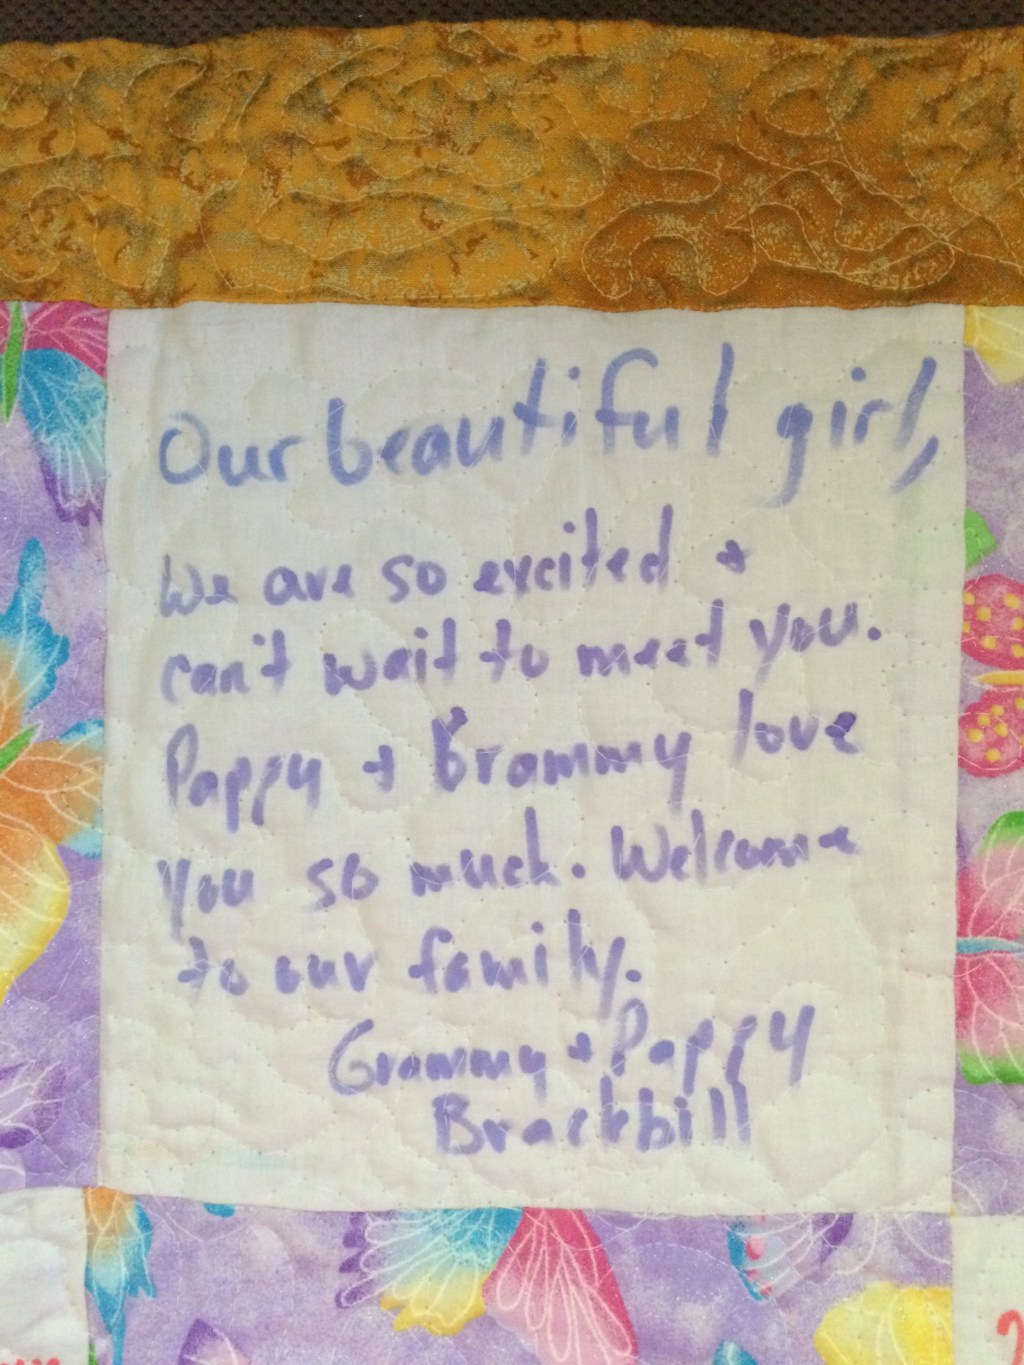 Our beautiful girl,
We are so excited +
can't wait to meet you.
Pappy + Grammy love
you so much. Welcome
to our family.
Grammy + Pappy
Brackbill